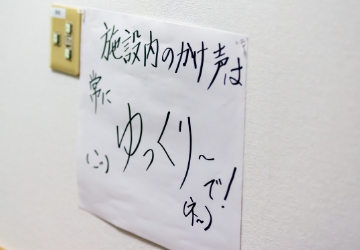 施設内のかけ声は
常に
ゆっくり〜
(ニッ)
で!
(ネ〜)